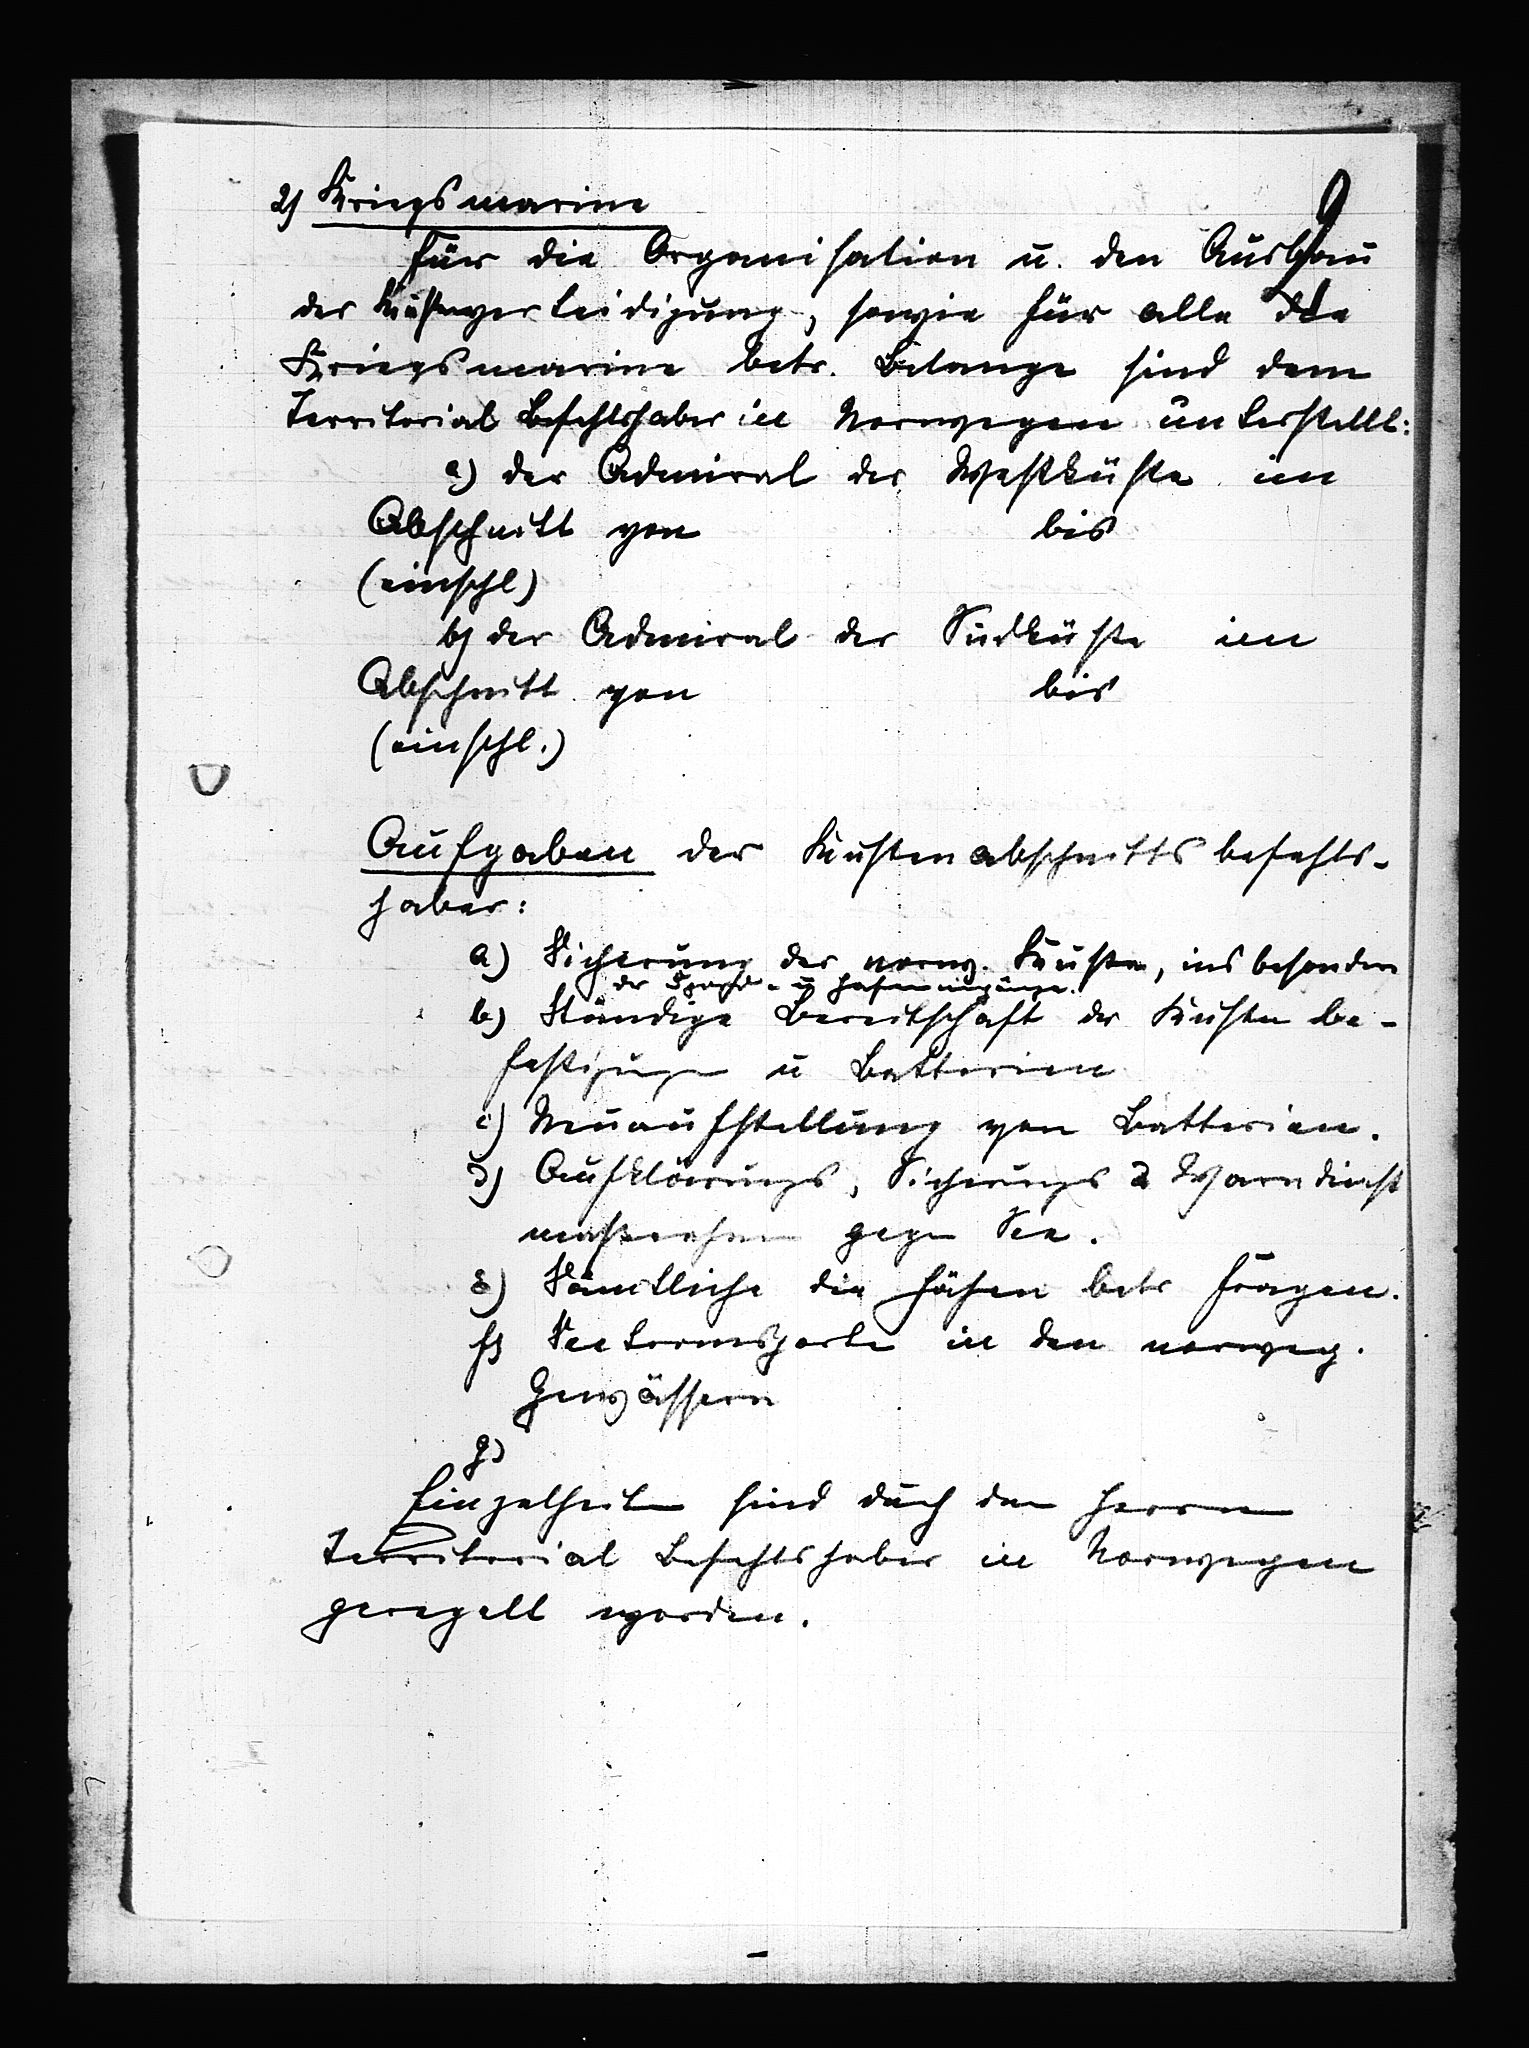 2) Kriegsmarine
Für die Organisation u. den Ausbau
der Küstenverteidigung, sowie für alle die
Kriegsmarine betr. Belange sind dem
Territorial Befehlshaber in Norwegen unterstellt:
a) der Admiral der Westküste im
Abschnitt von bis
(einschl)
b) der Admiral der Südküste im
Abschnitt von bis
(einschl.)
Aufgaben der Küstenabschnittsbefehls-
haber:
a) Sicherung der norw. Küste, insbesondere
der Fjord- u Hafeneingänge.
b) Ständige Bereitschaft der Küstenbe-
festigungen u Batterien
c) Neuaufstellung von Batterien.
d) Aufklärungs, Sicherungs & Warndienst
maßnahmen gegen See.
e) Sämtliche die Häfen betr Fragen.
f) Seetransporte in den norweg.
Gewässern
g)
Einzelheiten sind durch den Herrn
Territorial Befehlshaber in Norwegen
geregelt worden.